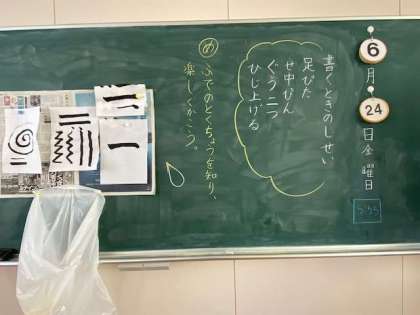 6月24日金曜日
書くときのしせい
足ぴた
せ中ぴん
ぐう二つ
ひじ上げる
め ふでのとくちょうを知り、
楽しくかこう。
二
一